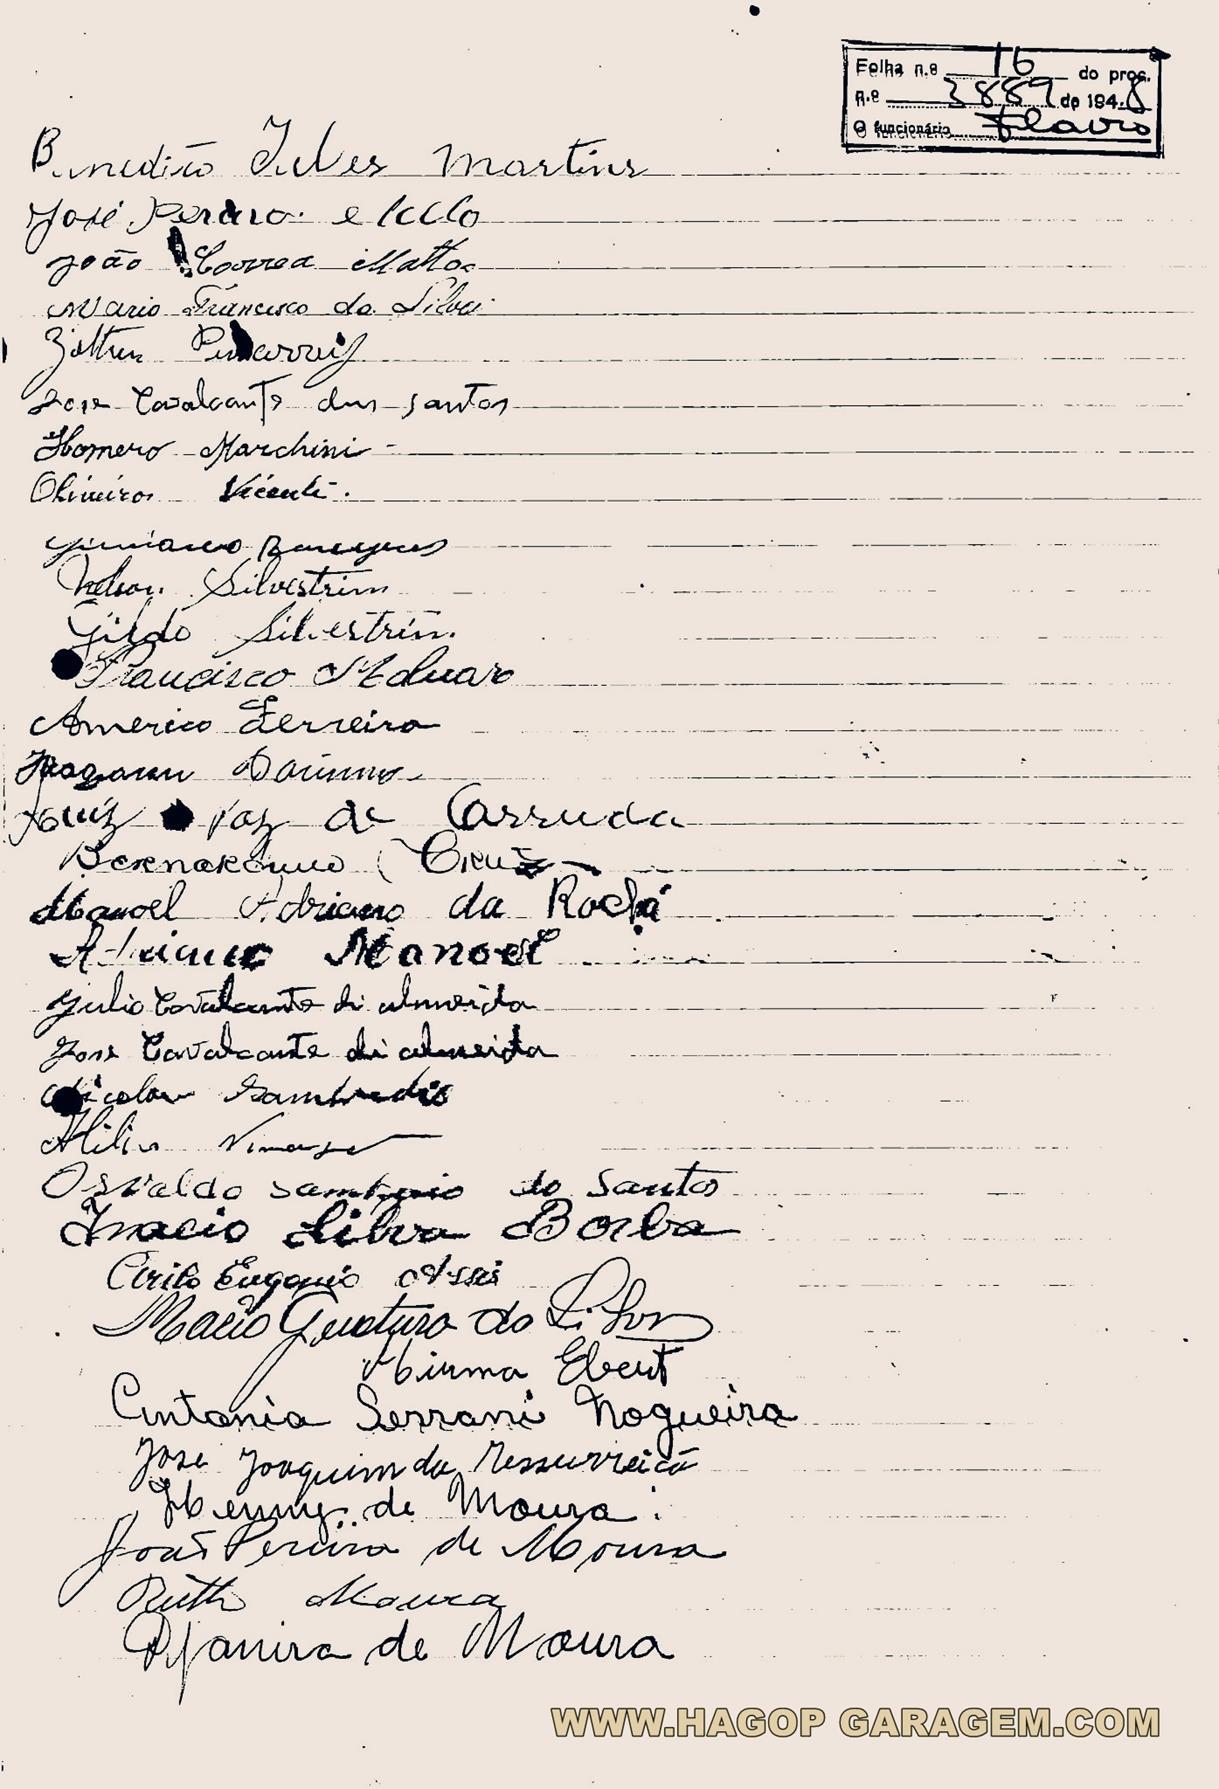 Folha n.º 16 do proc.
n.º 3889 de 1948
O funcionário Flavio
Benedito Martins
José
João Correa Mattos
Mario Francisco da Silva
José Cavalcante dos santos
Homero Marchini
Vicente.
Nelson Silvestrin
Gildo Silvestrin.
Francisco
Americo Ferreira
Luiz Vaz de Carruda
Bernardino Cruz
Manoel Adriano da Rocha
Adriano Manoel
Julio Cavalcante di almeida
José Cavalcante di almeida
Nicolau
Osvaldo Sampaio do Santos
Inacio Silva Borba
Cirilo Eugenio Assis
da Silva
Mirma Ebert
Antonia Serrani Nogueira
José Joaquim da Ressurreicã
Henny de Moura
João Pereira de Moura
Ruth Moura
Djanira de Moura
WWW.HAGOP GARAGEM.COM